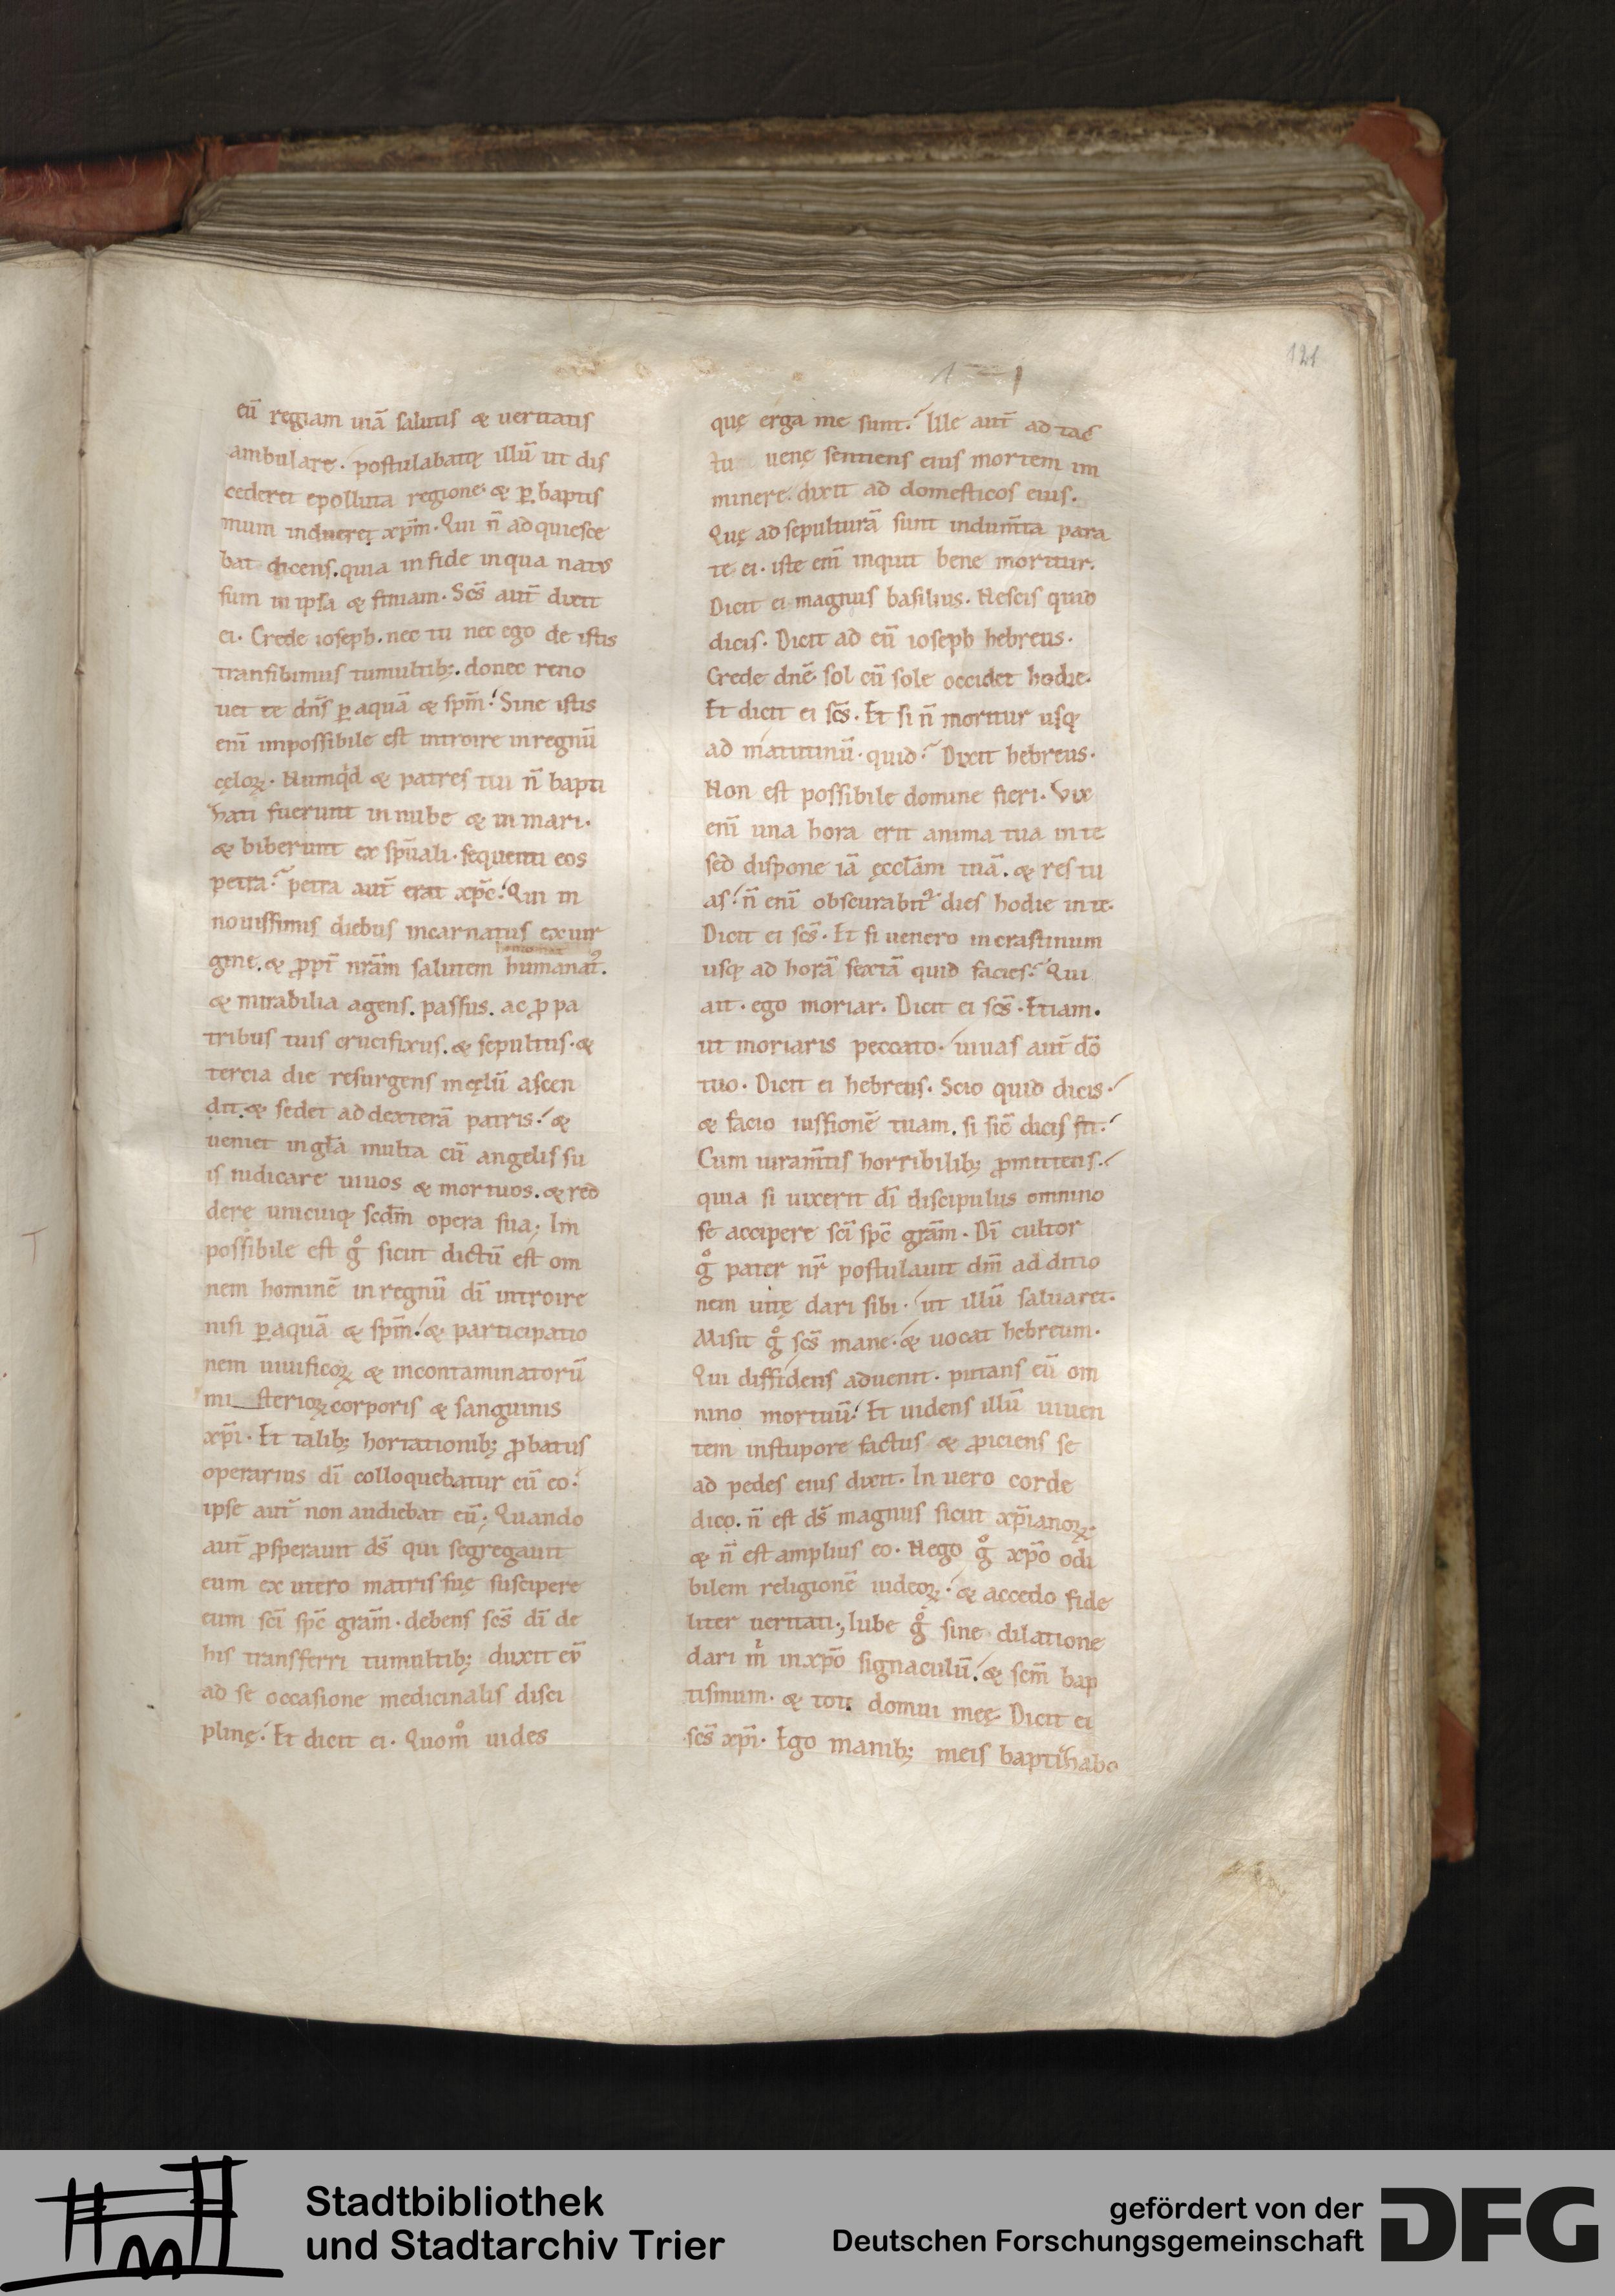 121
eū regiam uiā salutis & ueritatis
ambulare. postulabatq; illū ut dis
cederet epolluta regione. & ꝑ baptis
mum indueret xp̄m. Qui n̄ adquiesce
bat dicens. quia in fide inqua natus
sum in ipsa & finiam. Scs̄ aut̄ dixit
ei. Crede ioseph. nec tu nec ego de istis
transibimus tumultib;. donec reno
uet te dn̄s ꝑ aquā & sp̄m. Sine istis
eni̅ impossibile est introire inregnū
cęloꝝ. Numqd & patres tui n̄ bapti
zati fuerunt in nube & in mari.
& biberunt ex sp̄uali. sequenti eos
petra. petra aut̄ erat xp̄c. Qui in
nouissimis diebus incarnatus exuir
gine. & ꝓpt̄ nr̄am salutem humanat᷒.
& mirabilia agens. passus. ac ꝓ pa
tribus tuis crucifixus. & sepultus. &
tercia die resurgens incęlū ascen
dit. & sedet addexterā patris. &
ueniet in gl̄a multa cū angelis su
is iudicare uiuos & mortuos. & red
dere unicuiq; scdm̄ opera sua; Im
possibile est gͦ sicut dictū est om
nem hominē in regnū dī introire
nisi ꝑ aquā & sp̄m. & participatio
nem uiuificoꝝ & incontaminatorū
mi sterioꝝ corporis & sanguinis
xp̄i. Et talib; hortationib; ꝓbatus
operarius dī colloquebatur cū eo.
ipse aut̄ non audiebat eū; Quando
aut̄ ꝓsperauit ds̄ qui segregauit
eum ex utero matris suę suscipere
eum scī sp̄c grām. debens scs̄ dī de
his transferri tumultib; duxit eū
ad se occasione medicinalis disci
plinę. Et dicit ei. Quomͦ uides
quę erga me sunt. Ille aut̄ ad tac
tu uenę sentiens eius mortem im
minere. dixit ad domesticos eius.
Quę ad sepulturā sunt indum̄ta para
te ei. iste enī inquit bene moritur.
Dicit ei magnus basilius. Nescis quid
dicis. Dicit ad eū ioseph hebreus.
Crede dnē sol cū sole occidet hodie.
Et dicit ei scs̄. Et si n̄ moritur usq;
ad matutinū. quid. Dixit hebreus.
Non est possibile domine fieri. Vix
enī una hora erit anima tua in te
sed dispone iā ęccl̄am tuā. & res tu
as. n̄ enī obscurabit᷒ dies hodie in te.
Dicit ei scs̄. Et si uenero in crastinum
usq; ad horā sextā quid facies. Qui
ait. ego moriar. Dicit ei scs̄. Etiam.
ut moriaris peccato. uiuas aut̄ dō
tuo. Dicit ei hebreus. Scio quid dicis.
& facio iussionē tuam. si sic̄ dicis fit.
Cum iuram̄tis horribilib; ꝓmittens.
quia si uixerit dī discipulus omnino
se accipere scī sp̄c grām. Dī cultor
gͦ pater nr̄ postulauit dm̄ ad ditio
nem uitę dari sibi. ut illū saluaret.
Misit gͦ scs̄ mane. & uocat hebreum.
Qui diffidens aduenit. putans eū om
nino mortuū. Et uidens illū uiuen
tem instupore factus & ꝓiciens se
ad pedes eius dixit. In uero corde
dico. n̄ est ds̄ magnus sicut xp̄ianoꝝ.
& n̄ est amplius eo. Nego gͦ xp̄o odi
bilem religionē iudeoꝝ. & accedo fide
liter ueritati; Iube gͦ sine dilatione
dari m̍ inxp̄o signaculū. & scm̄ bap
tismum. & toti domui meę. Dicit ei
scs̄ xp̄i. Ego manib; meis baptizabo
Stadtbibliothek
und Stadtarchiv Trier
gefördert von der
Deutschen Forschungsgemeinschaft
DFG